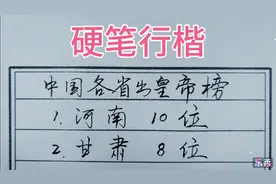 硬笔行楷
中国各省出皇帝榜
1. 河南 10位
2. 甘肃 8位
乐秀